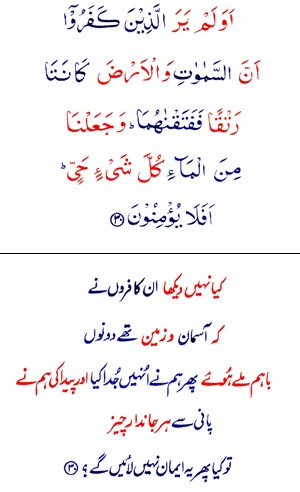 اَوَلَمْ يَرَ الَّذِيْنَ كَفَرُوْۤا
اَنَّ السَّمٰوٰتِ وَالْاَرْضَ كَانَتَا
رَتْقًا فَفَتَقْنٰهُمَا ؕ وَجَعَلْنَا
مِنَ الْمَآءِ كُلَّ شَىْءٍ حَىٍّ ؕ
اَفَلَا يُؤْمِنُوْنَ ۝۳۰
کیا نہیں دیکھا ان کافروں نے
کہ آسمان و زمین تھے دونوں
باہم ملے ہُوئے پھر ہم نے اُنہیں جُدا کیا اور پیدا کی ہم نے
پانی سے ہر جاندار چیز
تو کیا پھر یہ ایمان نہیں لائیں گے؟ ۝۳۰